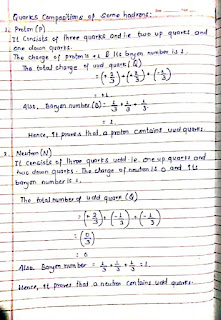 Quarks Compositions of some hadrons:
1. Proton (P)
It Consists of three quarks and i.e two up quarks and
one down quark.
The charge of proton is +1 & its baryon number is 1.
The total charge of uud quark (Q)
= (+2/3) + (+2/3) + (-1/3)
= +1.
Also, Baryon number (B) = 1/3 + 1/3 + 1/3
= 1.
Hence, it proves that a proton contains uud quarks.
2. Neutron (N)
It consists of three quarks udd i.e. one up quark and
two down quarks. The charge of neutron is 0 and its
baryon number is 1.
The total number of udd quark (Q)
= (+2/3) + (-1/3) + (-1/3)
= (0/3)
= 0
Also Baryon number = 1/3 + 1/3 + 1/3 = 1.
Hence, it proves that a neutron contains udd quarks.